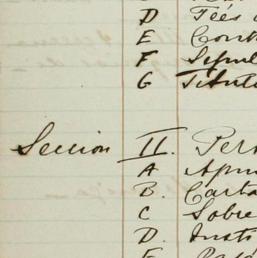 D Fées
E Cont
F Sepul
G Titul
Seccion II. Pers
A Apun
B. Carta
C Sobre
D. Instr
E